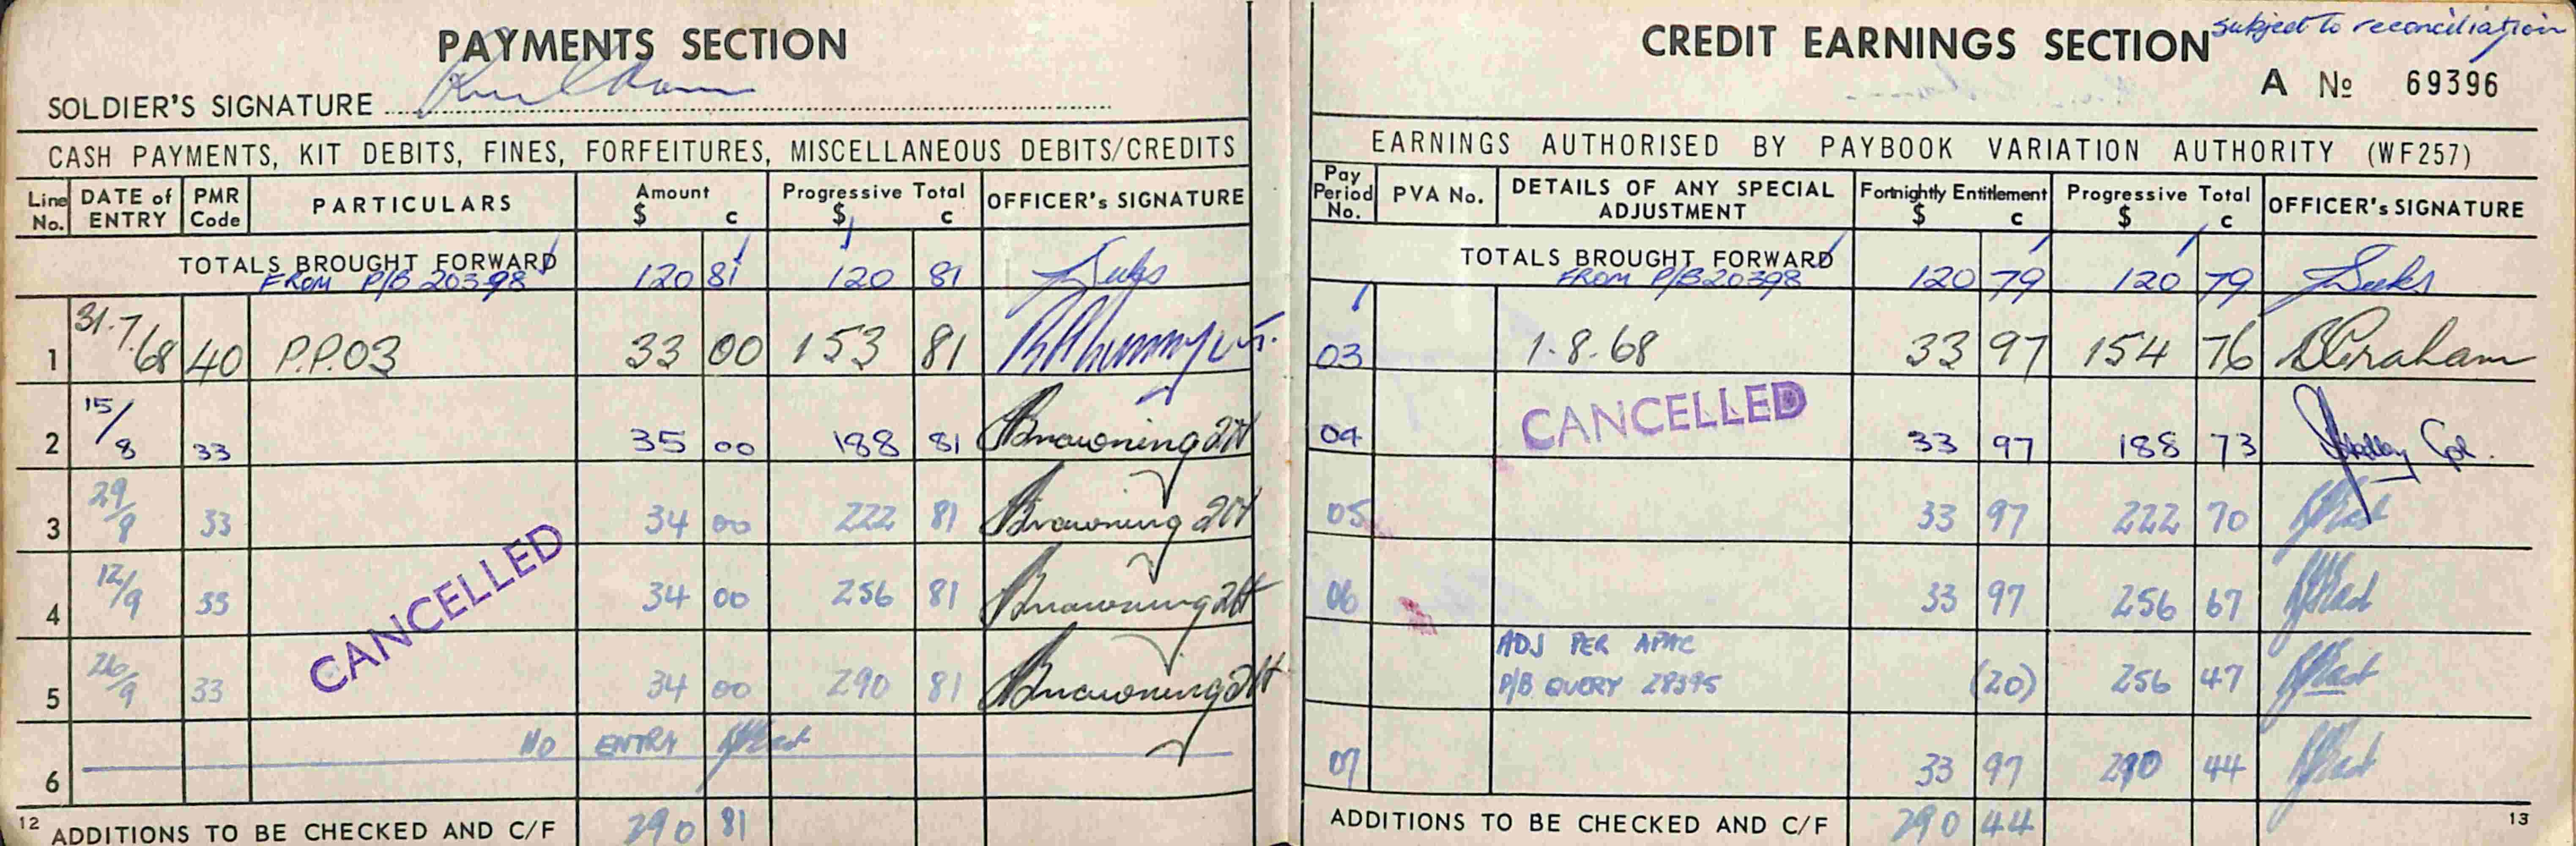 PAYMENTS SECTION
SOLDIER'S SIGNATURE
CASH PAYMENTS, KIT DEBITS, FINES, FORFEITURES, MISCELLANEOUS DEBITS/CREDITS
Line No. DATE of ENTRY PMR Code PARTICULARS Amount $ c Progressive Total $ c OFFICER's SIGNATURE
TOTALS BROUGHT FORWARD 120 81 120 81
FROM P/B 20398
1 31.7.68 40 P.P.03 33 00 153 81
2 15/8 33 35 00 188 81 Browning 2Lt
3 29/8 33 34 00 222 81 Browning 2Lt
4 12/9 33 34 00 256 81 Browning 2Lt
5 26/9 33 34 00 290 81 Browning 2Lt
CANCELLED
6 NO ENTRY
12 ADDITIONS TO BE CHECKED AND C/F 290 81
CREDIT EARNINGS SECTION
subject to reconciliation
A No 69396
EARNINGS AUTHORISED BY PAYBOOK VARIATION AUTHORITY (WF257)
Pay Period No. PVA No. DETAILS OF ANY SPECIAL ADJUSTMENT Fortnightly Entitlement $ c Progressive Total $ c OFFICER's SIGNATURE
TOTALS BROUGHT FORWARD 120 79 120 79
FROM P/B 20398
03 1.8.68 33 97 154 76 Graham
04 CANCELLED 33 97 188 73 Cpl.
05 33 97 222 70
06 33 97 256 67
ADJ PER APAC
P/B QUERY 28395 (20) 256 47
07 33 97 290 44
ADDITIONS TO BE CHECKED AND C/F 290 44
13